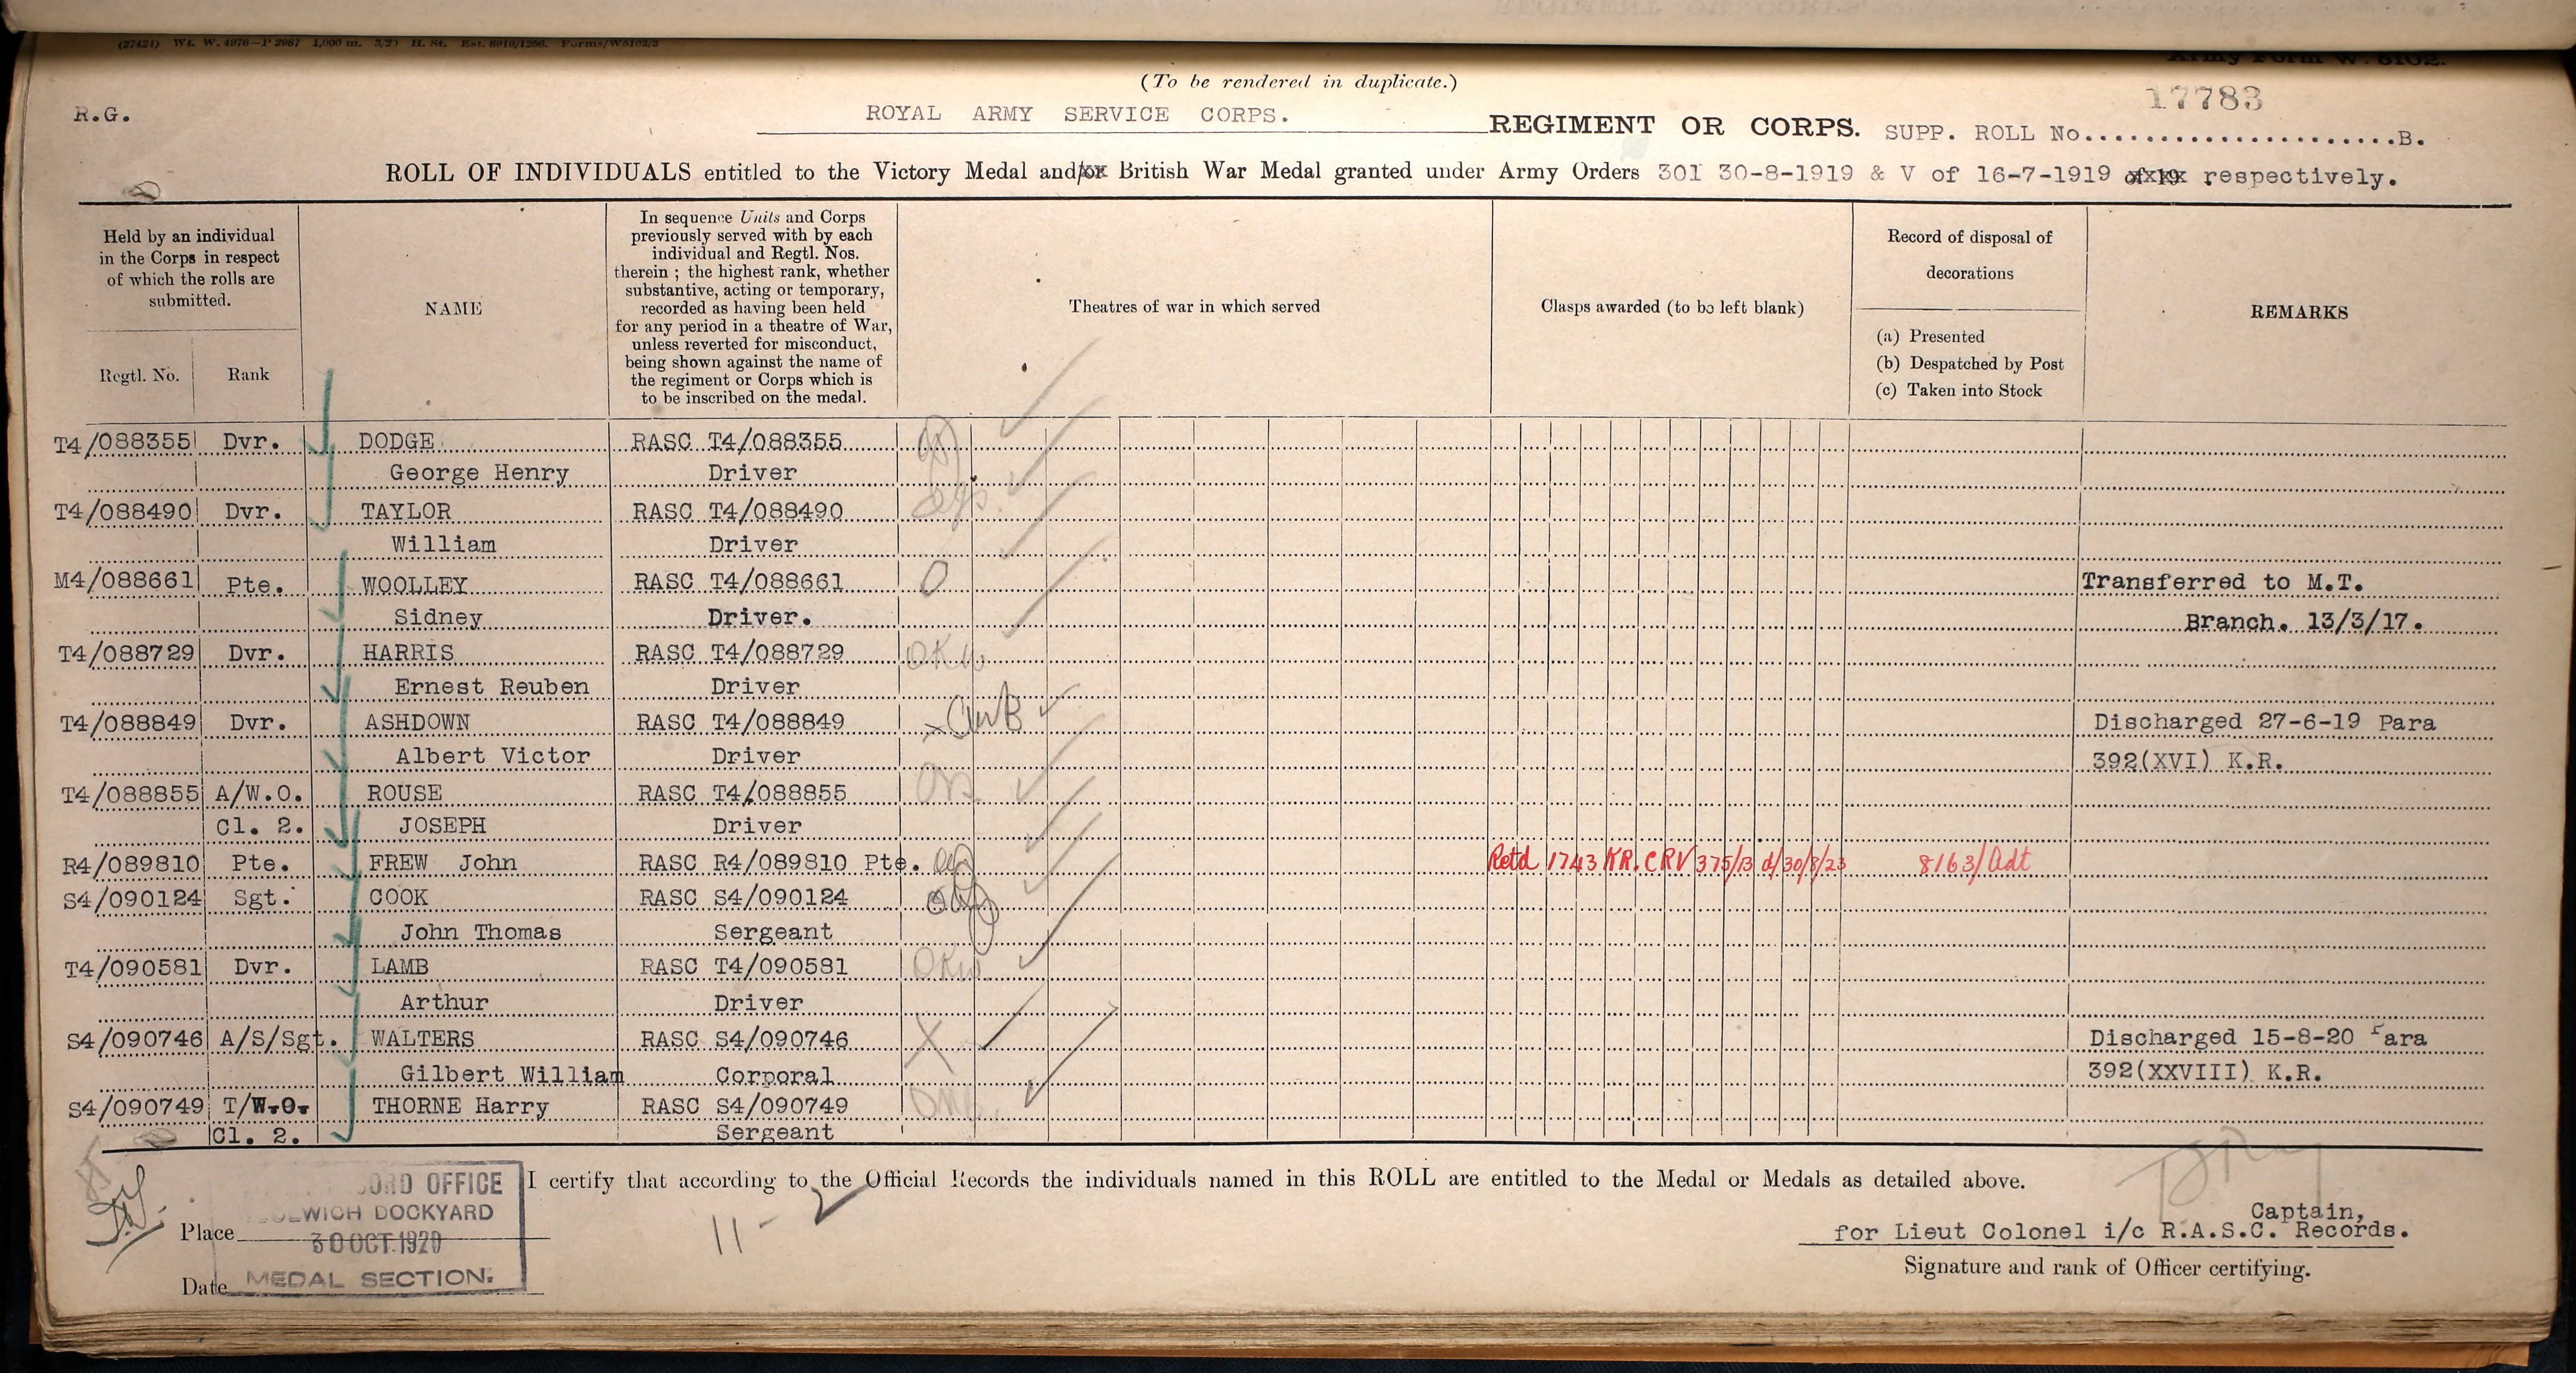 (27421) Wt. W. 4976—P 2967 1,000 m. 3/20 H. St. Est. 8010/1256. Forms/W5102/2
Army Form W. 5102.
(To be rendered in duplicate.)
R.G.
ROYAL ARMY SERVICE CORPS. REGIMENT OR CORPS. SUPP. ROLL No. 17783 B.
ROLL OF INDIVIDUALS entitled to the Victory Medal and/or British War Medal granted under Army Orders 301 30-8-1919 & V of 16-7-1919 of 19 respectively.
Held by an individual
in the Corps in respect
of which the rolls are
submitted.
Regtl. No. Rank
NAME
In sequence Units and Corps
previously served with by each
individual and Regtl. Nos.
therein ; the highest rank, whether
substantive, acting or temporary,
recorded as having been held
for any period in a theatre of War,
unless reverted for misconduct,
being shown against the name of
the regiment or Corps which is
to be inscribed on the medal.
Theatres of war in which served
Clasps awarded (to be left blank)
Record of disposal of
decorations
(a) Presented
(b) Despatched by Post
(c) Taken into Stock
REMARKS
T4/088355 Dvr. DODGE RASC T4/088355
George Henry Driver
T4/088490 Dvr. TAYLOR RASC T4/088490
William Driver
M4/088661 Pte. WOOLLEY RASC T4/088661 O Transferred to M.T.
Sidney Driver. Branch. 13/3/17.
T4/088729 Dvr. HARRIS RASC T4/088729
Ernest Reuben Driver
T4/088849 Dvr. ASHDOWN RASC T4/088849 Discharged 27-6-19 Para
Albert Victor Driver 392(XVI) K.R.
T4/088855 A/W.O. ROUSE RASC T4/088855
Cl. 2. JOSEPH Driver
R4/089810 Pte. FREW John RASC R4/089810 Pte. Retd 1743 KR. CRV 375/13 d/30/8/23 8163/Adt
S4/090124 Sgt. COOK RASC S4/090124
John Thomas Sergeant
T4/090581 Dvr. LAMB RASC T4/090581
Arthur Driver
S4/090746 A/S/Sgt. WALTERS RASC S4/090746 X Discharged 15-8-20 Para
Gilbert William Corporal 392(XXVIII) K.R.
S4/090749 T/W.O. THORNE Harry RASC S4/090749
Cl. 2. Sergeant
I certify that according to the Official Records the individuals named in this ROLL are entitled to the Medal or Medals as detailed above.
ORD OFFICE
LWICH DOCKYARD
30 OCT. 1920
MEDAL SECTION.
Place
Date
11 -
Captain,
for Lieut Colonel i/c R.A.S.C. Records.
Signature and rank of Officer certifying.